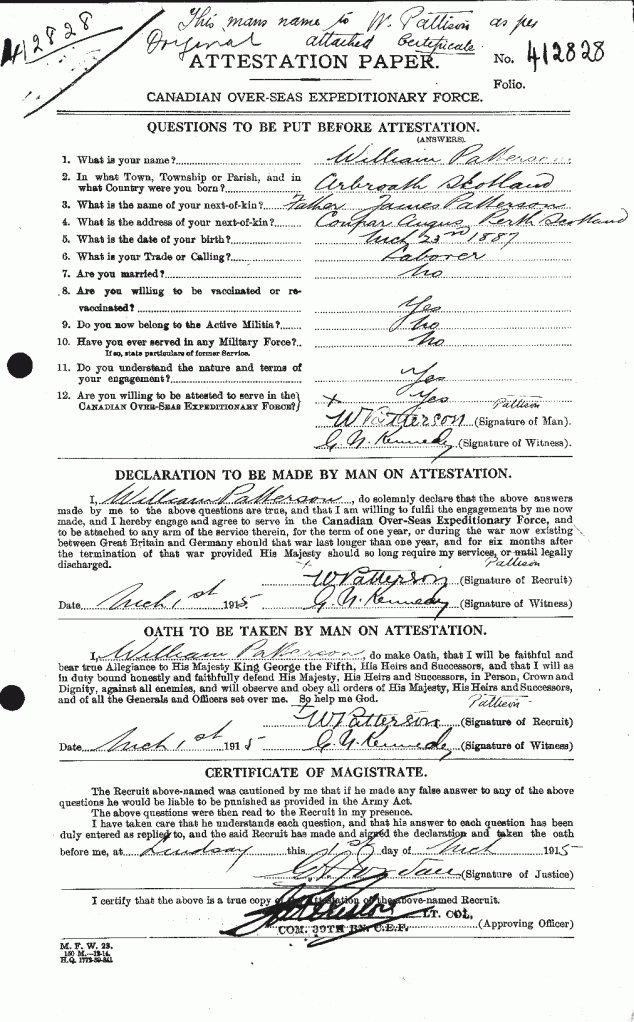 This mans name to W. Pattison as per
Original attached Certificate.
412828
ATTESTATION PAPER.
No. 412828
Folio.
CANADIAN OVER-SEAS EXPEDITIONARY FORCE.
QUESTIONS TO BE PUT BEFORE ATTESTATION.
(ANSWERS).
1. What is your name? William Patterson
2. In what Town, Township or Parish, and in
what Country were you born? Arbroath Skotland
3. What is the name of your next-of-kin? Father James Patterson
4. What is the address of your next-of-kin? Coupar Angus Perth Scotland
5. What is the date of your birth? Mch 23rd 1887
6. What is your Trade or Calling? Laborer
7. Are you married? No
8. Are you willing to be vaccinated or re-
vaccinated? Yes
9. Do you now belong to the Active Militia? No
10. Have you ever served in any Military Force? No
If so, state particulars of former Service.
11. Do you understand the nature and terms of
your engagement? Yes
12. Are you willing to be attested to serve in the
CANADIAN OVER-SEAS EXPEDITIONARY FORCE? Yes
Pattison
W Patterson (Signature of Man).
G. N. Kennedy (Signature of Witness).
DECLARATION TO BE MADE BY MAN ON ATTESTATION.
I, William Patterson, do solemnly declare that the above answers
made by me to the above questions are true, and that I am willing to fulfil the engagements by me now
made, and I hereby engage and agree to serve in the Canadian Over-Seas Expeditionary Force, and
to be attached to any arm of the service therein, for the term of one year, or during the war now existing
between Great Britain and Germany should that war last longer than one year, and for six months after
the termination of that war provided His Majesty should so long require my services, or until legally
discharged.
Pattison
W Patterson (Signature of Recruit)
Date Mch 1st 1915. G. N. Kennedy (Signature of Witness)
OATH TO BE TAKEN BY MAN ON ATTESTATION.
I, William Patterson, do make Oath, that I will be faithful and
bear true Allegiance to His Majesty King George the Fifth, His Heirs and Successors, and that I will as
in duty bound honestly and faithfully defend His Majesty, His Heirs and Successors, in Person, Crown and
Dignity, against all enemies, and will observe and obey all orders of His Majesty, His Heirs and Successors,
and of all the Generals and Officers set over me. So help me God.
Pattison
W Patterson (Signature of Recruit)
Date Mch 1st 1915 G. N. Kennedy (Signature of Witness)
CERTIFICATE OF MAGISTRATE.
The Recruit above-named was cautioned by me that if he made any false answer to any of the above
questions he would be liable to be punished as provided in the Army Act.
The above questions were then read to the Recruit in my presence.
I have taken care that he understands each question, and that his answer to each question has been
duly entered as replied to, and the said Recruit has made and signed the declaration and taken the oath
before me, at Lindsay this 1st day of Mch 1915
(Signature of Justice)
I certify that the above is a true copy of the Attestation of the above-named Recruit.
LT. COL.
COM. 39TH BN. C.E.F. (Approving Officer)
M. F. W. 23.
150 M.—12-14.
H.Q. 1772-39-841